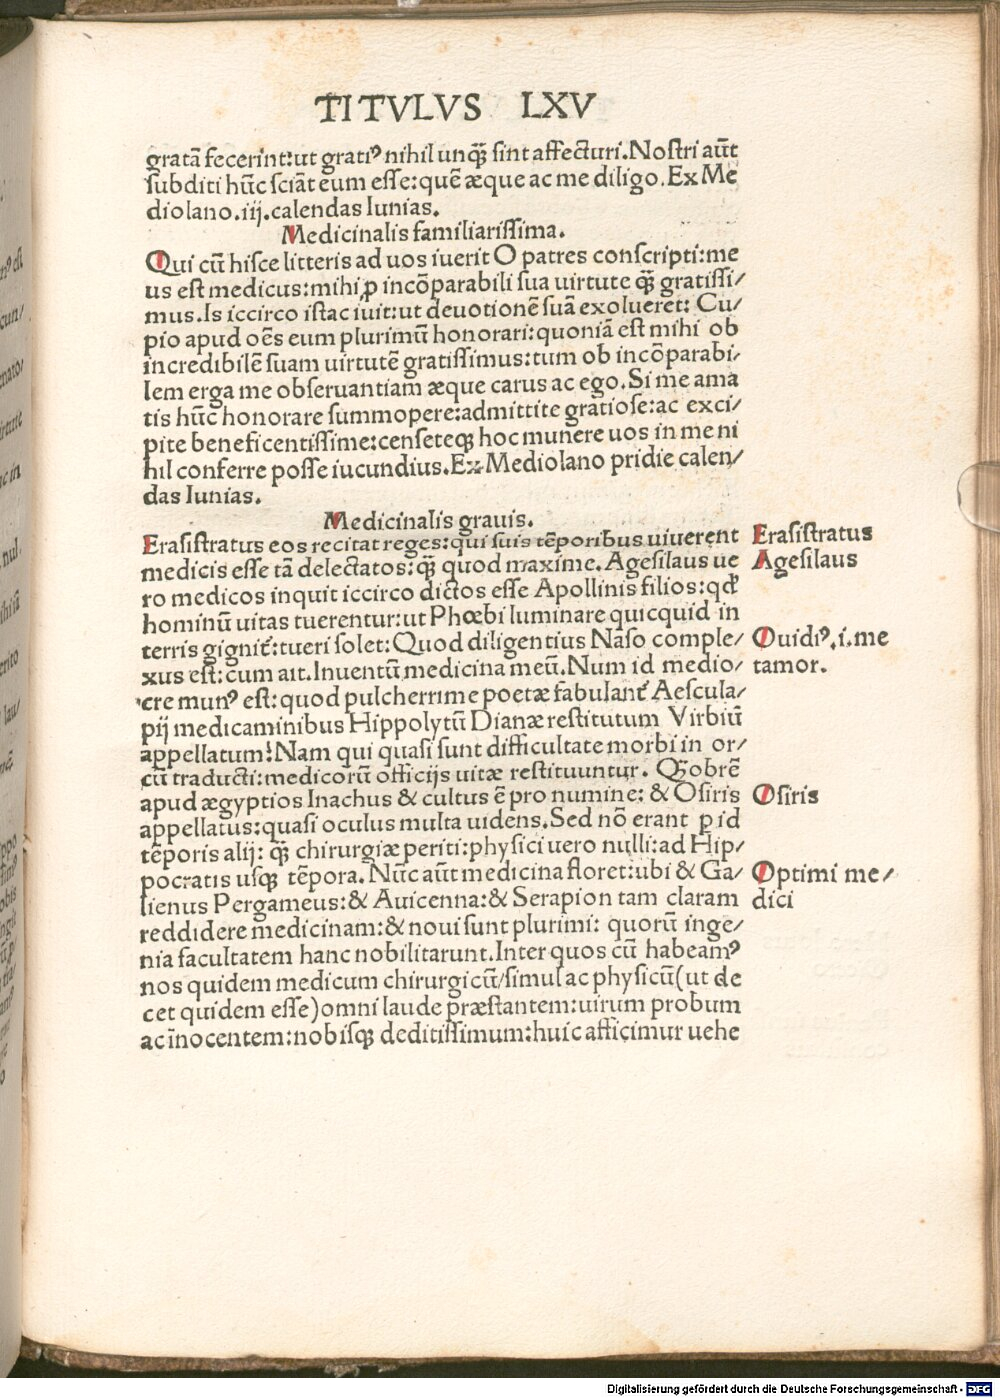 TITVLVS LXV
gratā fecerint:ut gratiꝰ nihil unq̄ȝ sint affecturi.Nostri aūt
subditi hūc sciāt eum esse:quē æque ac me diligo.Ex Me
diolano.iij.calendas Iunias.
Medicinalis familiarissima.
Qui cū hisce litteris ad uos iuerit O patres conscripti:me
us est medicus:mihi ꝓ incōparabili sua uirtute q̄ȝ gratissi/
mus.Is iccirco istac iuit:ut deuotionē suā exolueret: Cu/
pio apud oēs eum plurimū honorari:quoniā est mihi ob
incredibilē suam uirtutē gratissimus:tum ob incōparabi/
lem erga me obseruantiam æque carus ac ego.Si me ama
tis hūc honorare summopere:admittite gratiose:ac exci/
pite beneficentissime:censeteqȝ hoc munere uos in me ni
hil conferre posse iucundius.Ex Mediolano pridie calen/
das Iunias.
Medicinalis grauis.
Erasistratus eos recitat reges:qui suis tēporibus uiuerent
medicis esse tā delectatos:q̄ȝ quod maxime.Agesilaus ue
ro medicos inquit iccirco dictos esse Apollinis filios:qđ
hominū uitas tuerentur:ut Phœbi luminare quicquid in
terris gignit̄:tueri solet:Quod diligentius Naso comple/
xus est:cum ait.Inuentū medicina meū.Num id medio/
cre munꝰ est:quod pulcherrime poetæ fabulant̄ Aescula/
pij medicaminibus Hippolytū Dianæ restitutum Virbiū
appellatum?Nam qui quasi sunt difficultate morbi in or/
cū traducti:medicorū officijs uitæ restituuntur. Q̄ȝobrē
apud ægyptios Inachus & cultus ē pro numine: & Osiris
appellatus:quasi oculus multa uidens.Sed nō erant ꝑ id
tēporis alij: q̄ȝ chirurgiæ periti:physici uero nulli:ad Hip/
pocratis usqȝ tēpora.Nūc aūt medicina floret:ubi & Ga/
lienus Pergameus:& Auicenna:& Serapion tam claram
reddidere medicinam:& noui sunt plurimi: quorū inge/
nia facultatem hanc nobilitarunt.Inter quos cū habeamꝰ
nos quidem medicum chirurgicū/simul ac physicū(ut de
cet quidem esse)omni laude præstantem:uirum probum
ac īnocentem:nobisqȝ deditissimum:huic afficimur uehe
Erasistratus
Agesilaus
Ouidiꝰ.i.me
tamor.
Osiris
Optimi me/
dici
Digitalisierung gefördert durch die Deutsche Forschungsgemeinschaft - DFG